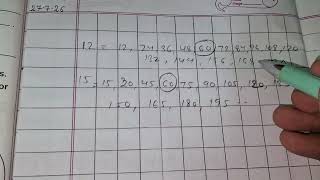 27-7-26
12 = 12, 24, 36, 48, 60, 72, 84, 96, 108, 120
132, 144, 156, 168
15 = 15, 30, 45, 60, 75, 90, 105, 120,
150, 165, 180, 195